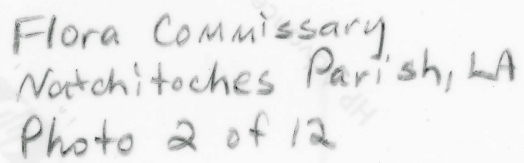 Flora Commissary
Natchitoches Parish, LA
Photo 2 of 12